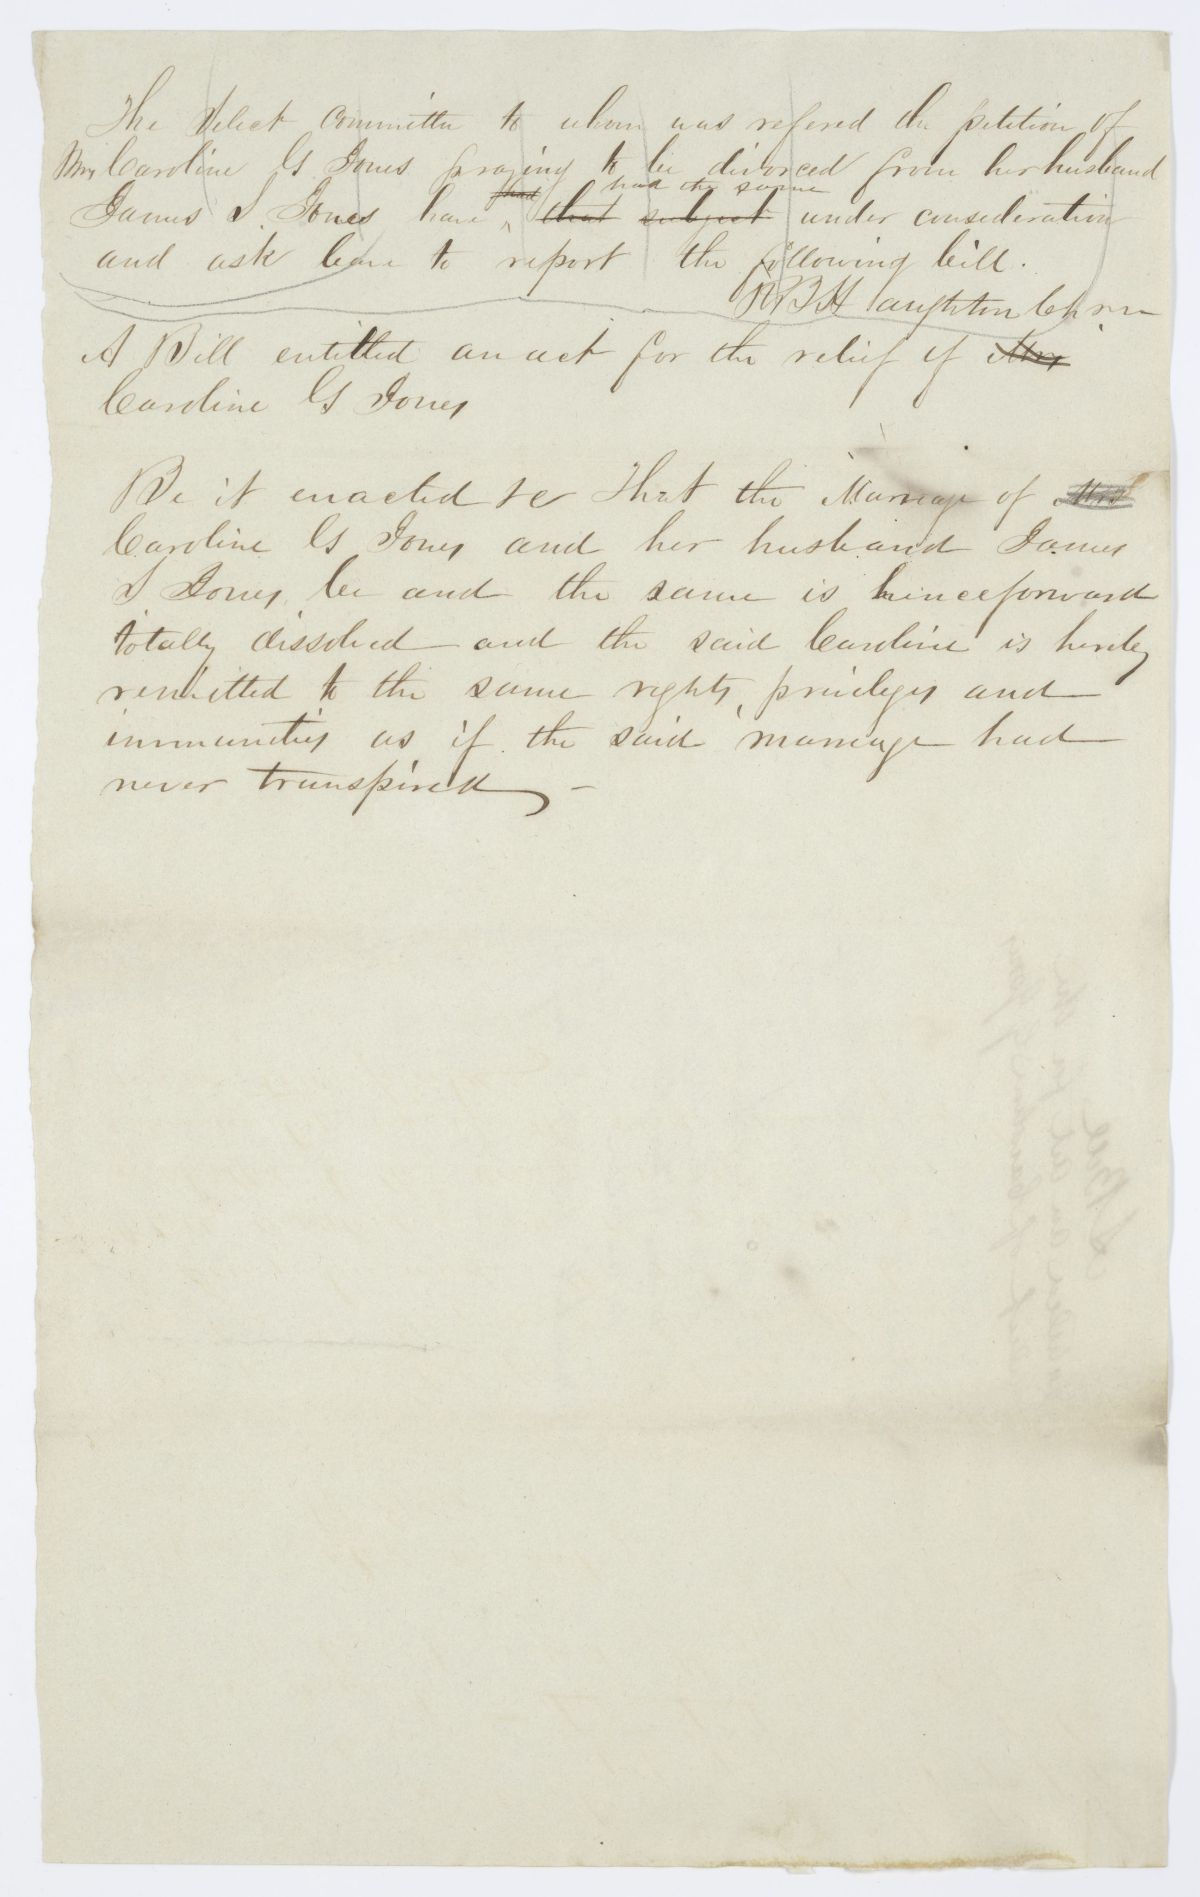 The Select Committee to whom was refered the petition of
Mrs Caroline G Jones praying to be divorced from her husband
had had the same
James S Jones have that subject under consideration
and ask leave to report the following bill.
R B Haughton Chrm
A Bill entitled an act for the relief of Mrs
Caroline G Jones
Be it enacted &c That the Marriage of Mrs
Caroline G Jones and her husband James
S Jones, be and the same is henceforward
totally dissolved and the said Caroline is hereby
remitted to the same rights, privileges and
immunities as if the said marriage had
never transpired -